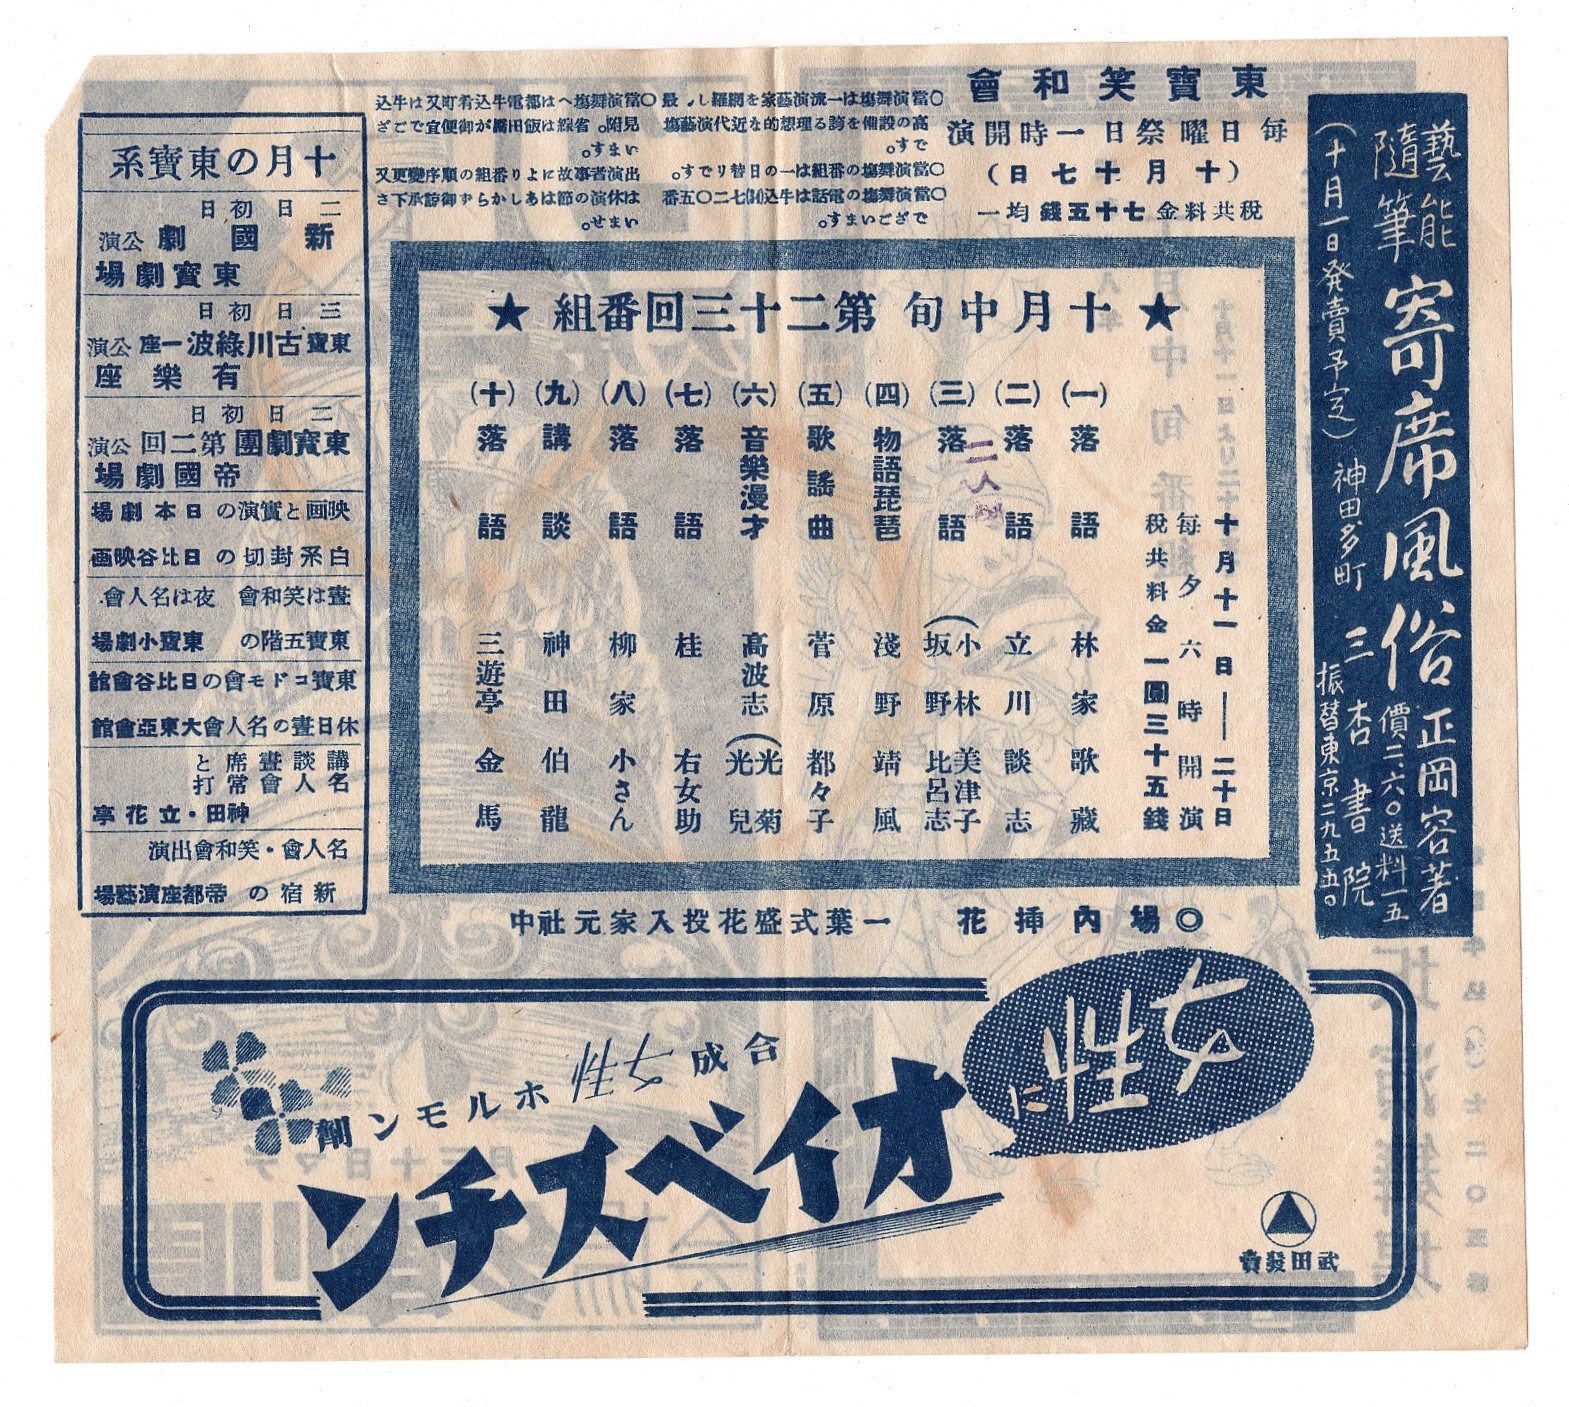 藝能隨筆
寄席風俗
正岡容著
(十月一日発賣予定)
價二、六〇送料一五
神田多町 三杏書院
振替東京二九五五〇
東寶笑和會
毎日曜祭日一時開演
(十月十七日)
稅共料金七十五錢均一
○當演舞塲は一流演藝家を網羅し、最
高の設備を誇る理想的な近代演藝塲
です。
○當演舞塲の番組は一の日替りです。
○當演舞塲の電話は牛込(34)七二〇五番
でございます。
○當演舞塲へは都電牛込肴町又は牛込
見附。省線は飯田橋が御便宜でござ
います。
出演者事故により番組の順序變更又
は休演の節はあしからず御諒承下さ
いませ。
★十月中旬 第二十三回番組★
十月十一日——二十日
每夕六時開演
稅共料金一圓三十五錢
(一)落語 林家歌藏
(二)落語 立川談志
(三)落語 (小林美津子
坂野比呂志
二人
(四)物語琵琶 淺野靖風
(五)歌謠曲 菅原都々子
(六)音樂漫才 高波志(光菊
光兒
(七)落語 桂右女助
(八)落語 柳家小さん
(九)講談 神田伯龍
(十)落語 三遊亭金馬
◎場內揷花 一葉式盛花投入家元社中
十月の東寶系
二日初日
新國劇公演
東寶劇場
三日初日
東寶古川綠波一座公演
有樂座
二日初日
東寶劇團第二回公演
帝國劇場
映画と實演の日本劇場
白系封切の日比谷映画
晝は笑和會 夜は名人會
東寶五階の 東寶小劇場
東寶コドモ會の日比谷會館
休日晝の名人會大東亞會館
講談晝席と
名人會常打
神田・立花亭
名人會・笑和會出演
新宿の帝都座演藝場
女性に
合成女性ホルモン劑
オイベスチン
武田發賣